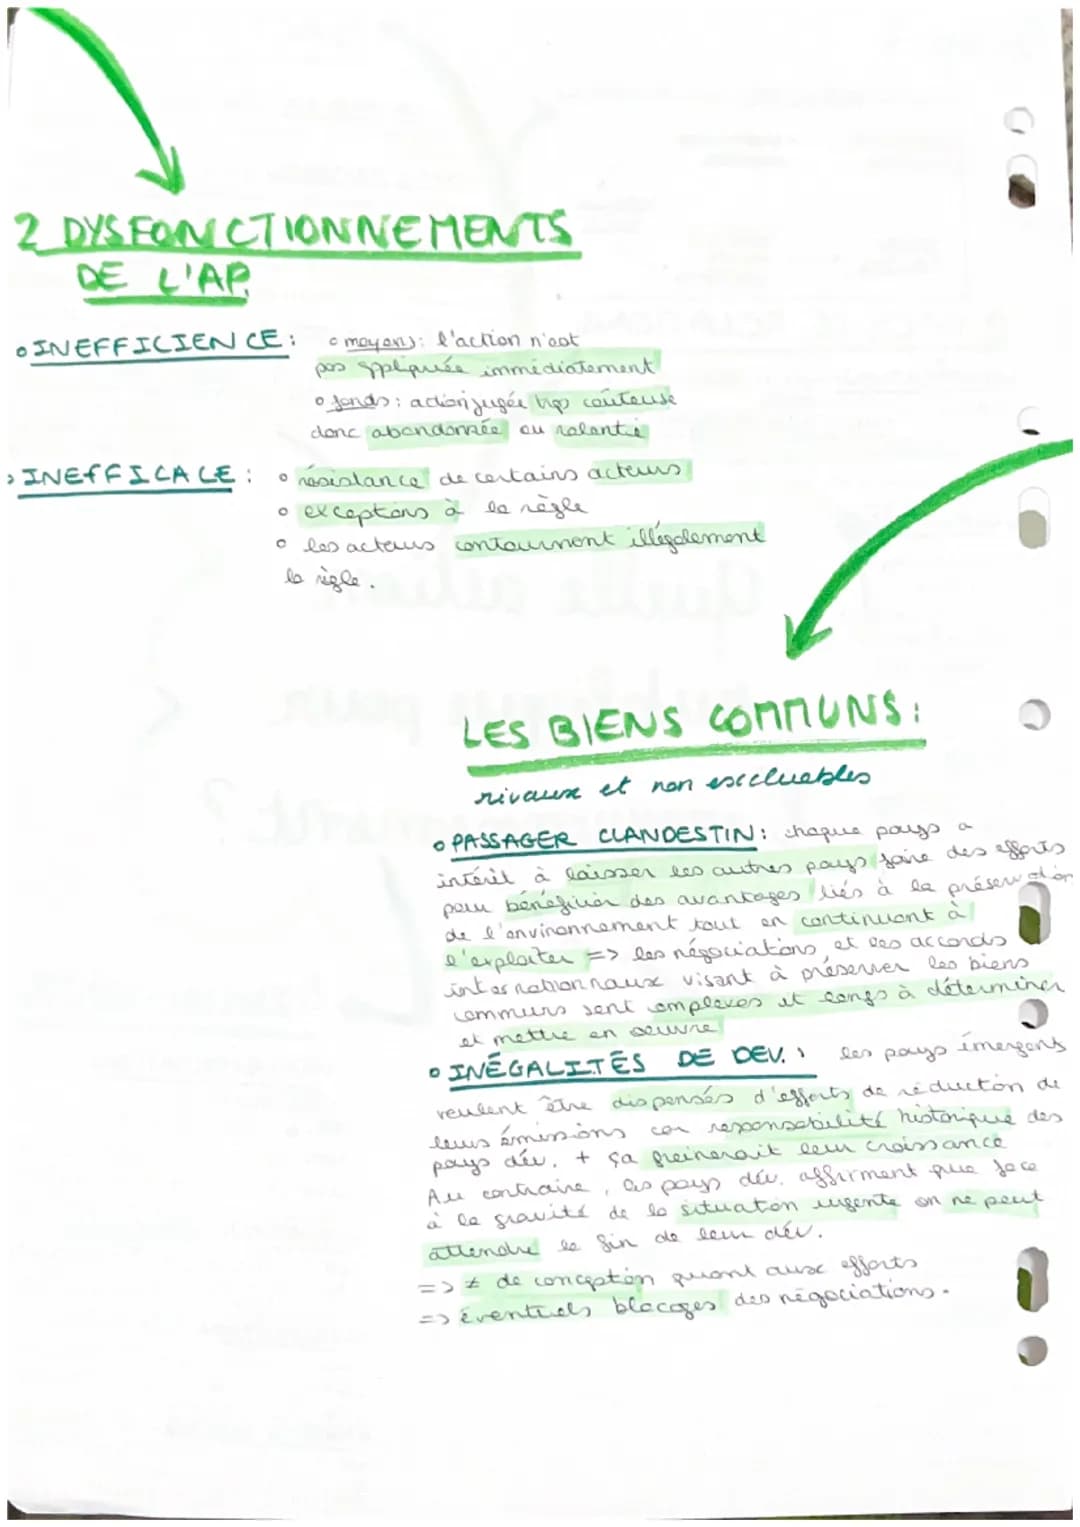 2 DYSFONCTIONNEMENTS
DE L'AP.
• INEFFICIENCE : • moyens : l'action n'est
pas appliquée immédiatement
• fonds : action jugée trop coûteuse
donc abandonnée ou ralentie
• INEFFICACE : • résistance de certains acteurs
• exceptions à la règle
• les acteurs contournent illégalement
la règle.
LES BIENS COMMUNS :
rivaux et non excluables
• PASSAGER CLANDESTIN : chaque pays a
intérêt à laisser les autres pays faire des efforts
pour bénéficier des avantages liés à la préservation
de l'environnement tout en continuant à
l'exploiter => les négociations et les accords
internationnaux visant à préserver les biens
communs sont complexes et longs à déterminer
et mettre en oeuvre
• INÉGALITÉS DE DEV. : les pays émergents
veulent être dispensés d'efforts de réduction de
leurs émissions car responsabilité historique des
pays dév. + ça freinerait leur croissance
Au contraire, les pays dév. affirment que face
à la gravité de la situation urgente on ne peut
attendre la fin de leur dév.
=> ≠ de conception quant aux efforts
=> éventuels blocages des négociations.
Quelle action
publique pour
l'environnement ?